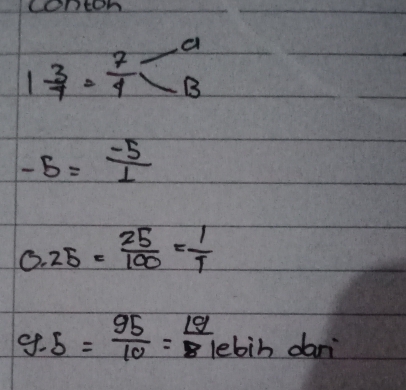 contoh
1 3/4 = 7/4 a
B
-5 = -5/1
0.25 = 25/100 = 1/4
9.5 = 95/10 = 19/ lebih dari